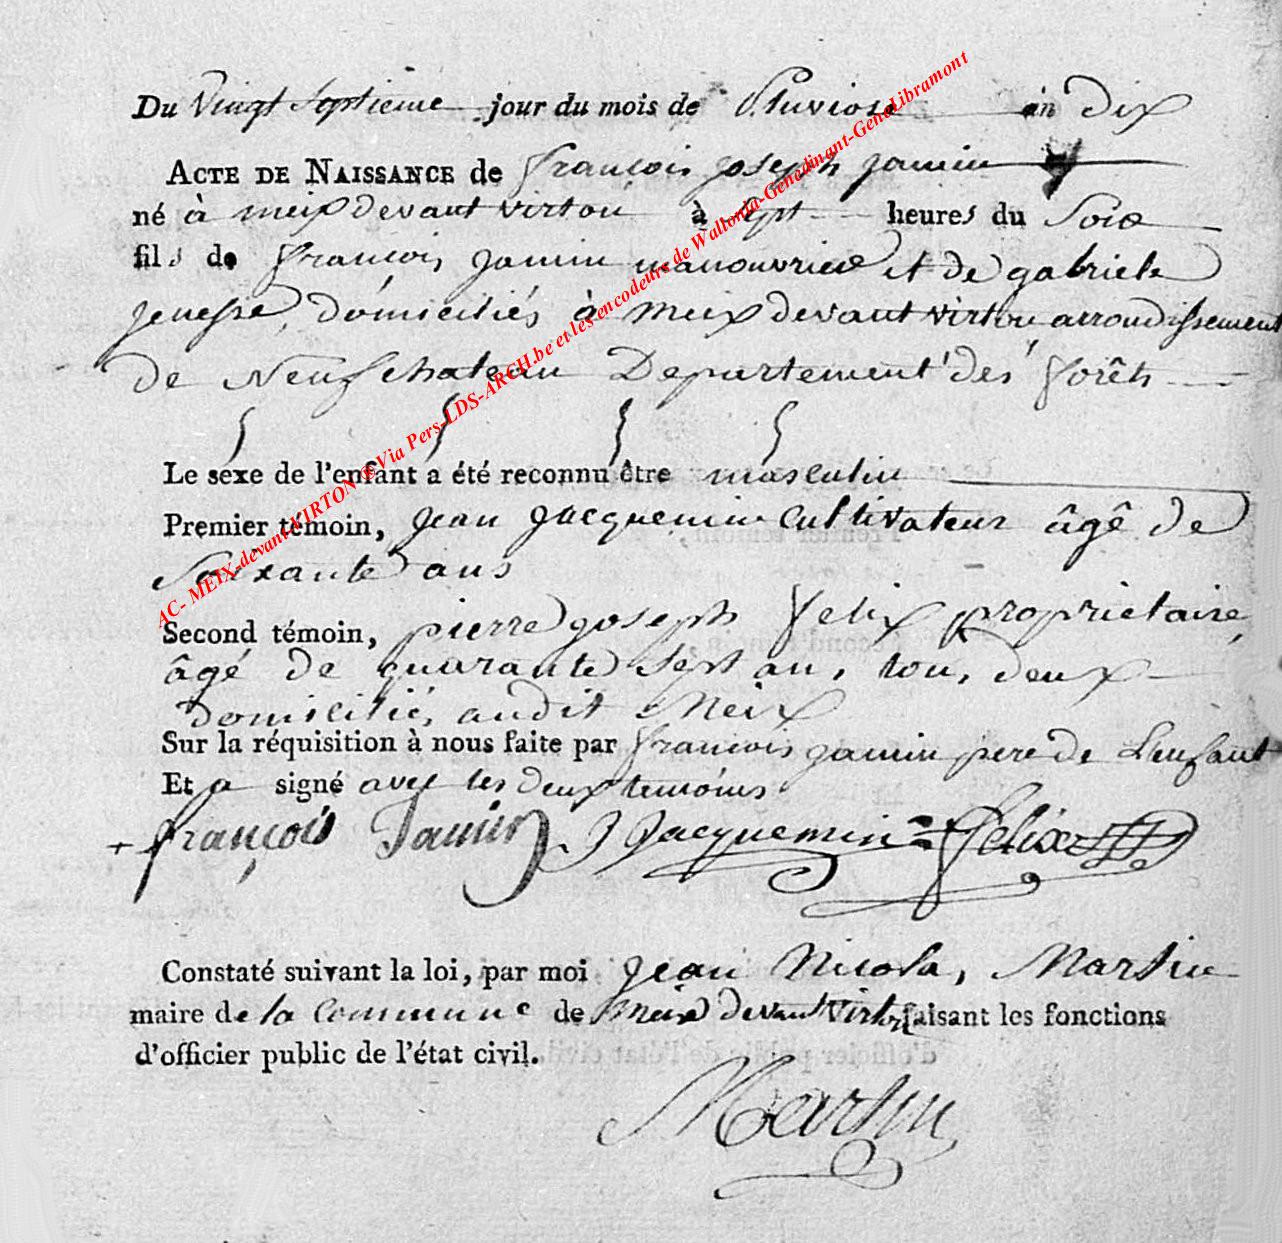 Du Vingt Septieme jour du mois de Pluviose an dix
ACTE DE NAISSANCE de françois joseph jamin
né à meix devant virton à sept heures du Soir
fils de françois jamin manouvrier et de gabriele
jenesse, domiciliés à meix devant virton arrondissement
de Neufchateau Departement des forêts
Le sexe de l'enfant a été reconnu être masculin
Premier témoin, jean jacquemin Cultivateur âgé de
Soixante ans
Second témoin, pierre joseph felix proprietaire,
âgé de quarante sept ans, tous deux
domiciliés audit Meix
Sur la réquisition à nous faite par francois jamin pere de L'enfant
Et a signé avec les deux temoins
+ françois Jamin J Jacquemin felix
Constaté suivant la loi, par moi jean Nicolas Martin
maire de la Commune de Meix devant Virton faisant les fonctions
d'officier public de l'état civil.
Martin
AC- MEIX-devant-VIRTON ® Via Pers-LDS-ARCH.be et les encodeurs de Wallonia-Genedinant-GeneLibramont